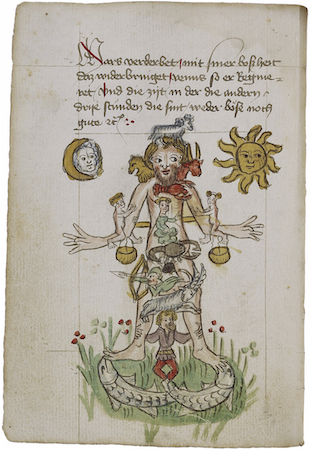 Mars verderbet mit siner bosheit
daz widerbringet venus so er Regnie-
ret Und die zijt in der die andern
drije stunden die sint weder böse noch
gute ꝛc